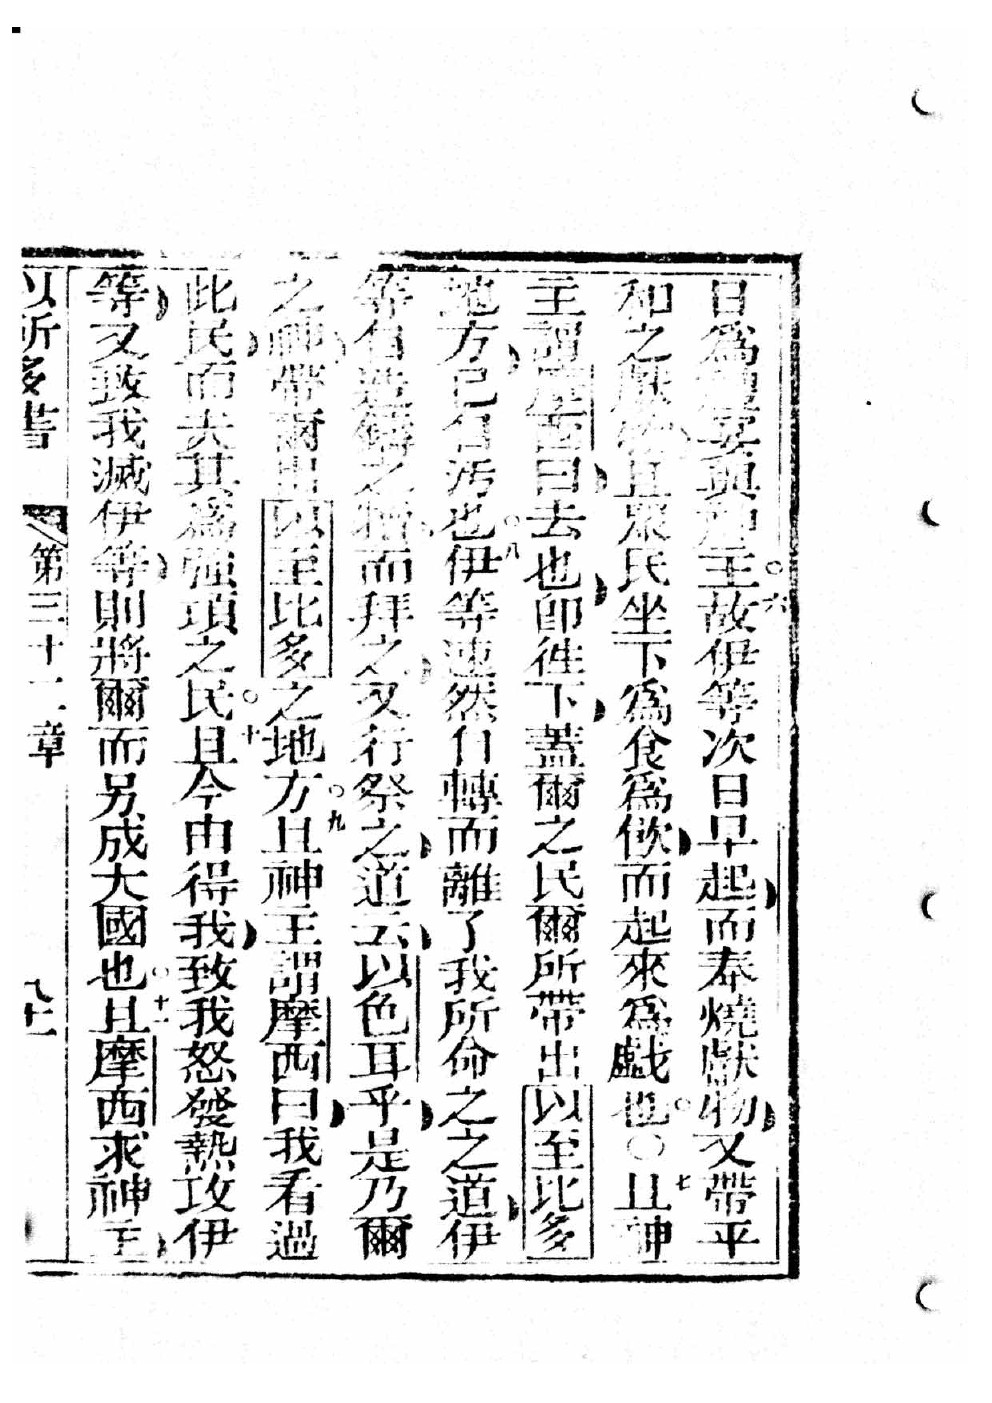 日為禮宴與神主○六故伊等次日早起而奉燒獻物又帶平
和之獻物且眾民坐下為食為飲而起來為戲也○○七且神
主謂摩西曰去也即徃下蓋爾之民爾所帶出以至比多
地方已自污也○八伊等速然自轉而離了我所命之之道伊
等自造鑄之犢而拜之又行祭之道云以色耳乎是乃爾
之神帶爾出以至比多之地方○九且神主謂摩西曰我看過
此民而夫其為強項之民○十且今由得我致我怒發熱攻伊
等又致我滅伊等則將爾而另成大國也○十一且摩西求神主
以所多書 第三十二章